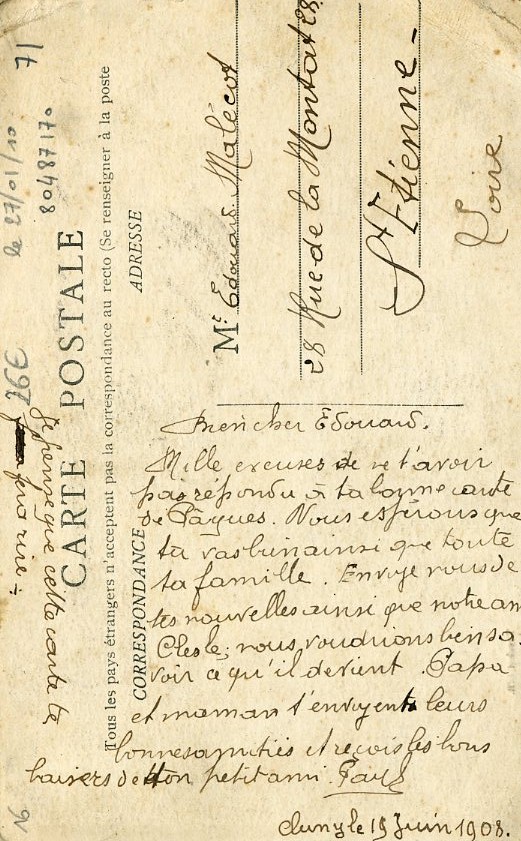 CARTE POSTALE
Tous les pays étrangers n'acceptent pas la correspondance au recto (Se renseigner à la poste
CORRESPONDANCE
ADRESSE
Mr Edouard Malécot
28 Rue de la Montat 28
St Etienne -
Loire
le 27/01/010
80487170
71
26€
Mon cher Edouard.
Mille excuses de ne t'avoir
pas répondu à ta bonne carte
de Pâques. Nous espérons que
tu vas bien ainsi que toute
ta famille. Envoye nous de
tes nouvelles ainsi que notre am
Clesle; nous voudrions bien sa
voir ce qu'il devient. Papa
et maman t'envoyent leurs
bonnes amitiés et reçois les bons
baisers de ton petit ami. Paul
Cluny le 19 Juin 1908.
Je pense que cette carte te
fera rire :